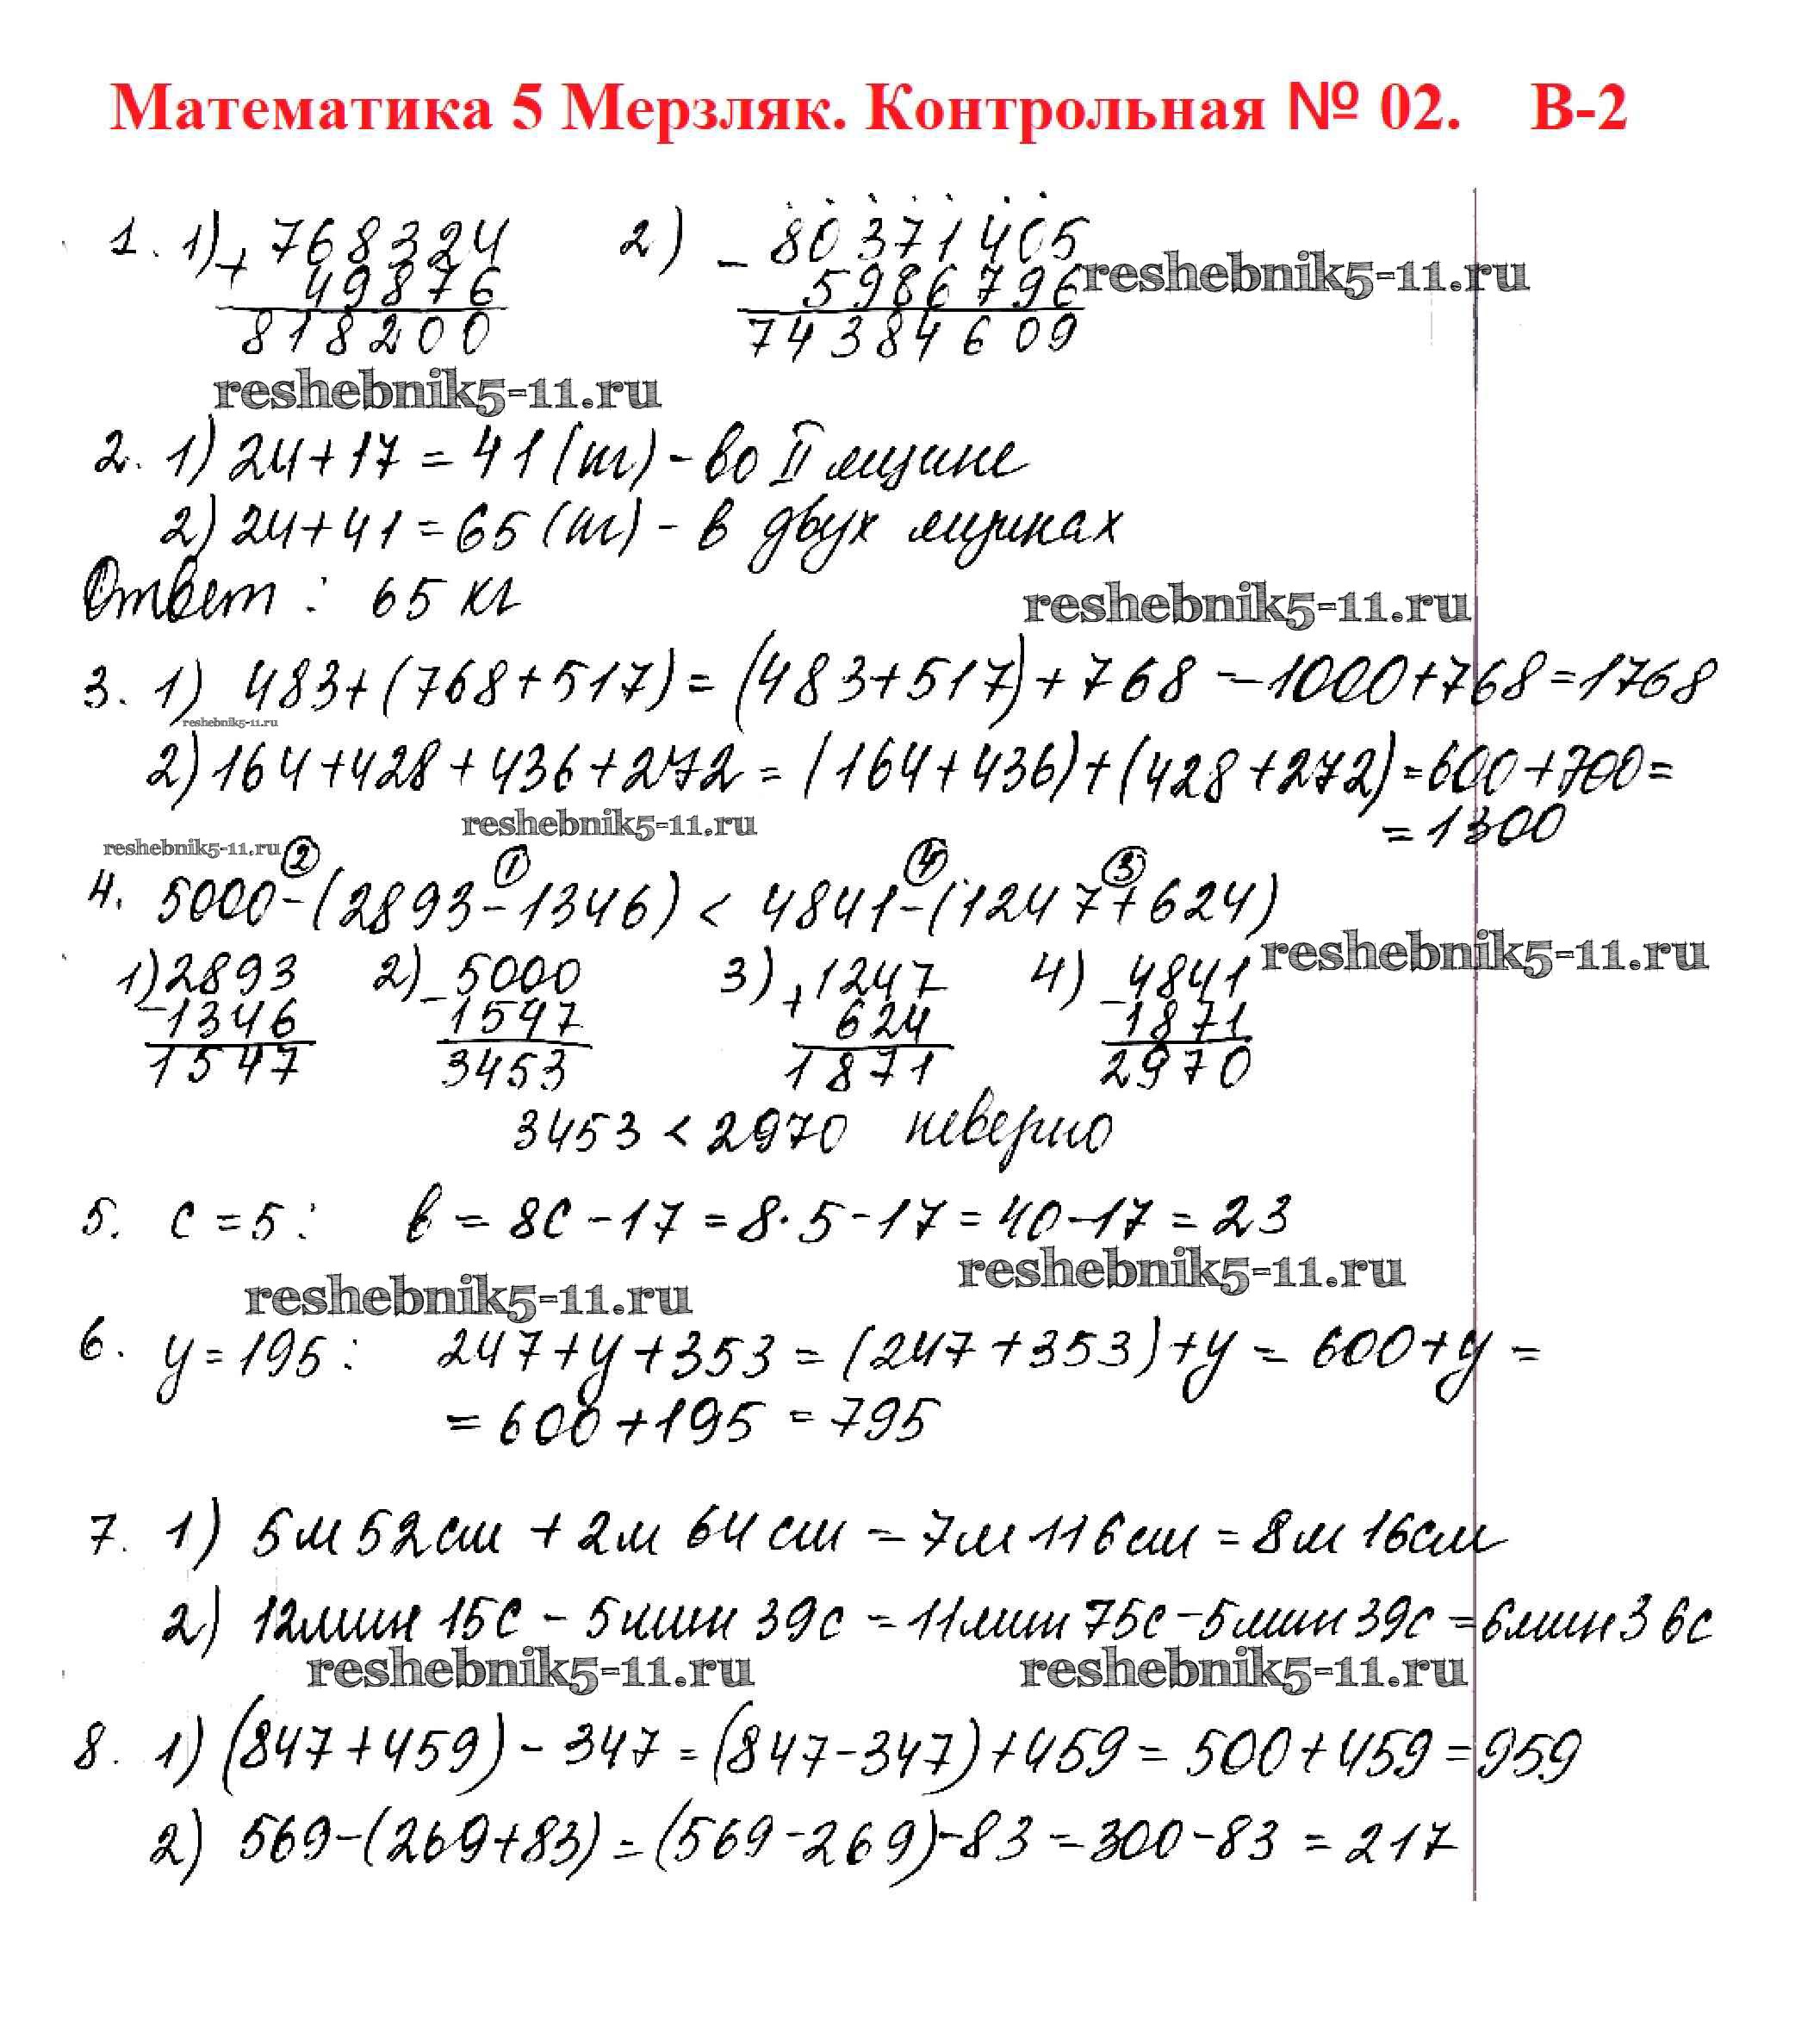 Математика 5 Мерзляк. Контрольная № 02. В-2
1. 1) + 768324 2) - 80371405
49876 5986796 reshebnik5-11.ru
818200 74384609
reshebnik5-11.ru
2. 1) 24+17=41(кг)-во II ящике
2) 24+41=65(кг)-в двух ящиках
Ответ: 65 кг
reshebnik5-11.ru
3. 1) 483+(768+517)=(483+517)+768=1000+768=1768
reshebnik5-11.ru
2) 164+428+436+272=(164+436)+(428+272)=600+700=
=1300
reshebnik5-11.ru
reshebnik5-11.ru
② ① ④ ③
4. 5000-(2893-1346) < 4841-(1247+624)
reshebnik5-11.ru
1) 2893 2) - 5000 3) + 1247 4) - 4841
- 1346 1547 624 1871
1547 3453 1871 2970
3453 < 2970 неверно
5. c=5: b=8c-17=8·5-17=40-17=23
reshebnik5-11.ru
reshebnik5-11.ru
6. y=195: 247+y+353=(247+353)+y=600+y=
=600+195=795
7. 1) 5м 52см + 2м 64см = 7м 116см = 8м 16см
2) 12мин 15с - 5мин 39с = 11мин 75с - 5мин 39с = 6мин 36с
reshebnik5-11.ru reshebnik5-11.ru
8. 1) (847+459)-347=(847-347)+459=500+459=959
2) 569-(269+83)=(569-269)-83=300-83=217